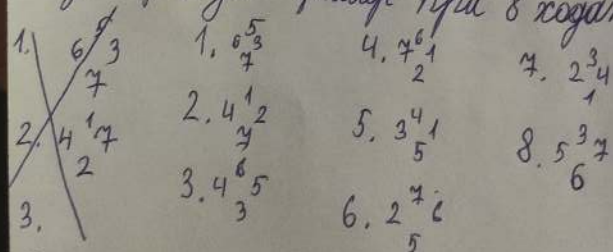 при 8 ходах
1. 6 3
7
2. 4 1 7
2
3.
1. 6 5 3
7
2. 4 1 2
7
3. 4 6 5
3
4. 7 6 1
2
5. 3 4 1
5
6. 2 7 6
5
7. 2 3 4
1
8. 5 3 7
6